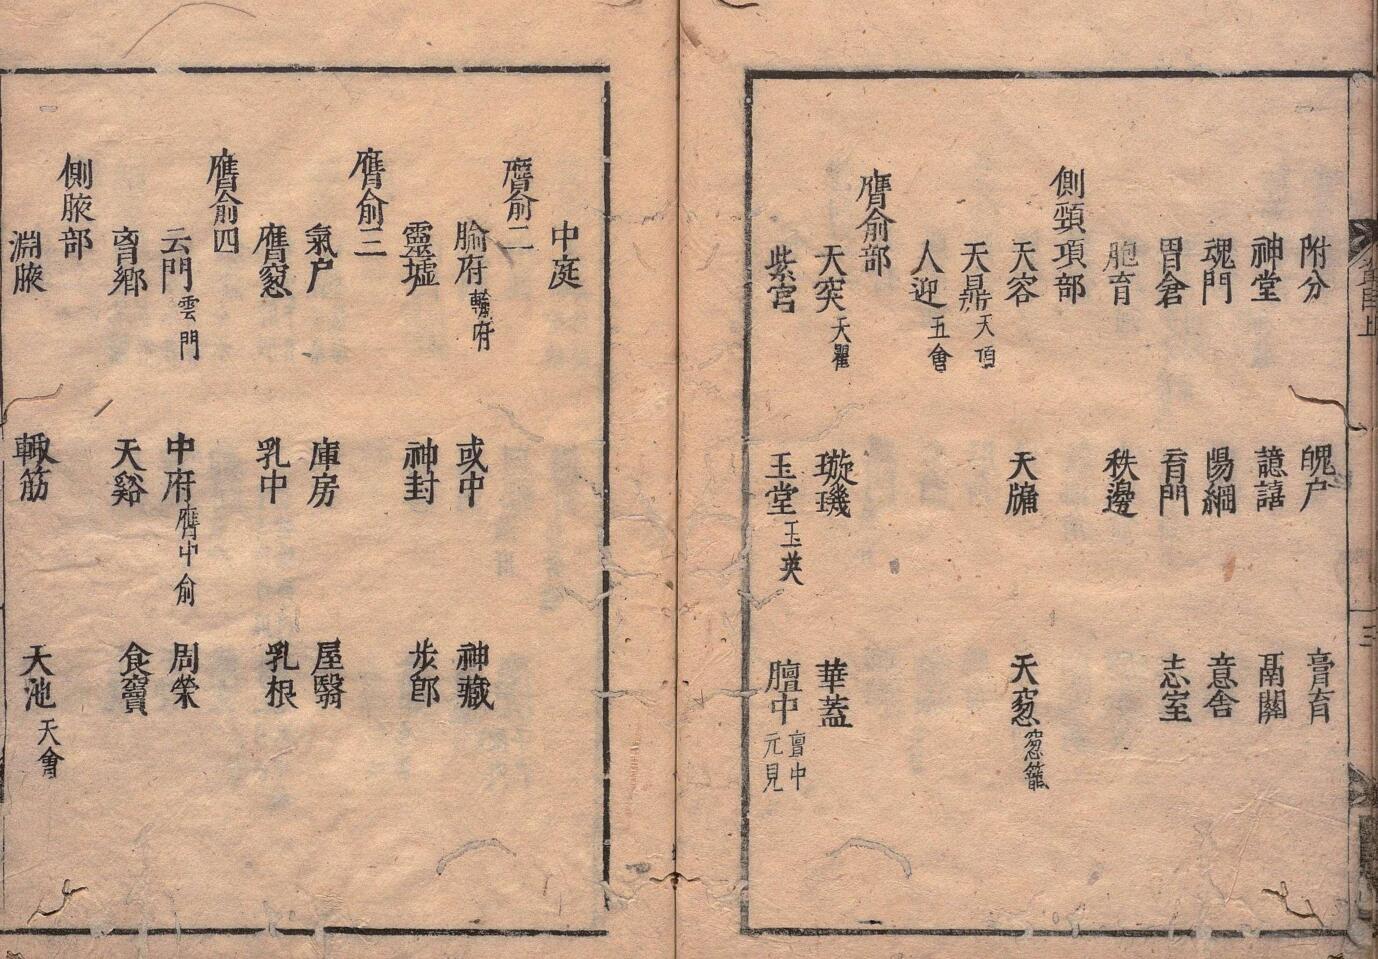 附分 魄户 膏肓
神堂 譩譆 鬲關
魂門 陽綱 意舍
胃倉 肓門 志室
胞肓 秩邊
側頸項部
天容 天牖 天窓窓籠
天鼎天頂
人迎五會
膺俞部
天突天瞿 璇璣 華蓋
紫宫 玉堂玉英 膻中亶中元見
中庭
膺俞二
腧府輸府 或中 神藏
靈墟 神封 步郎
膺俞三
氣户 庫房 屋翳
膺窓 乳中 乳根
膺俞四
云門雲門 中府膺中俞 周榮
胷鄉 天谿 食竇
側腋部
淵腋 輒筋 天池天會